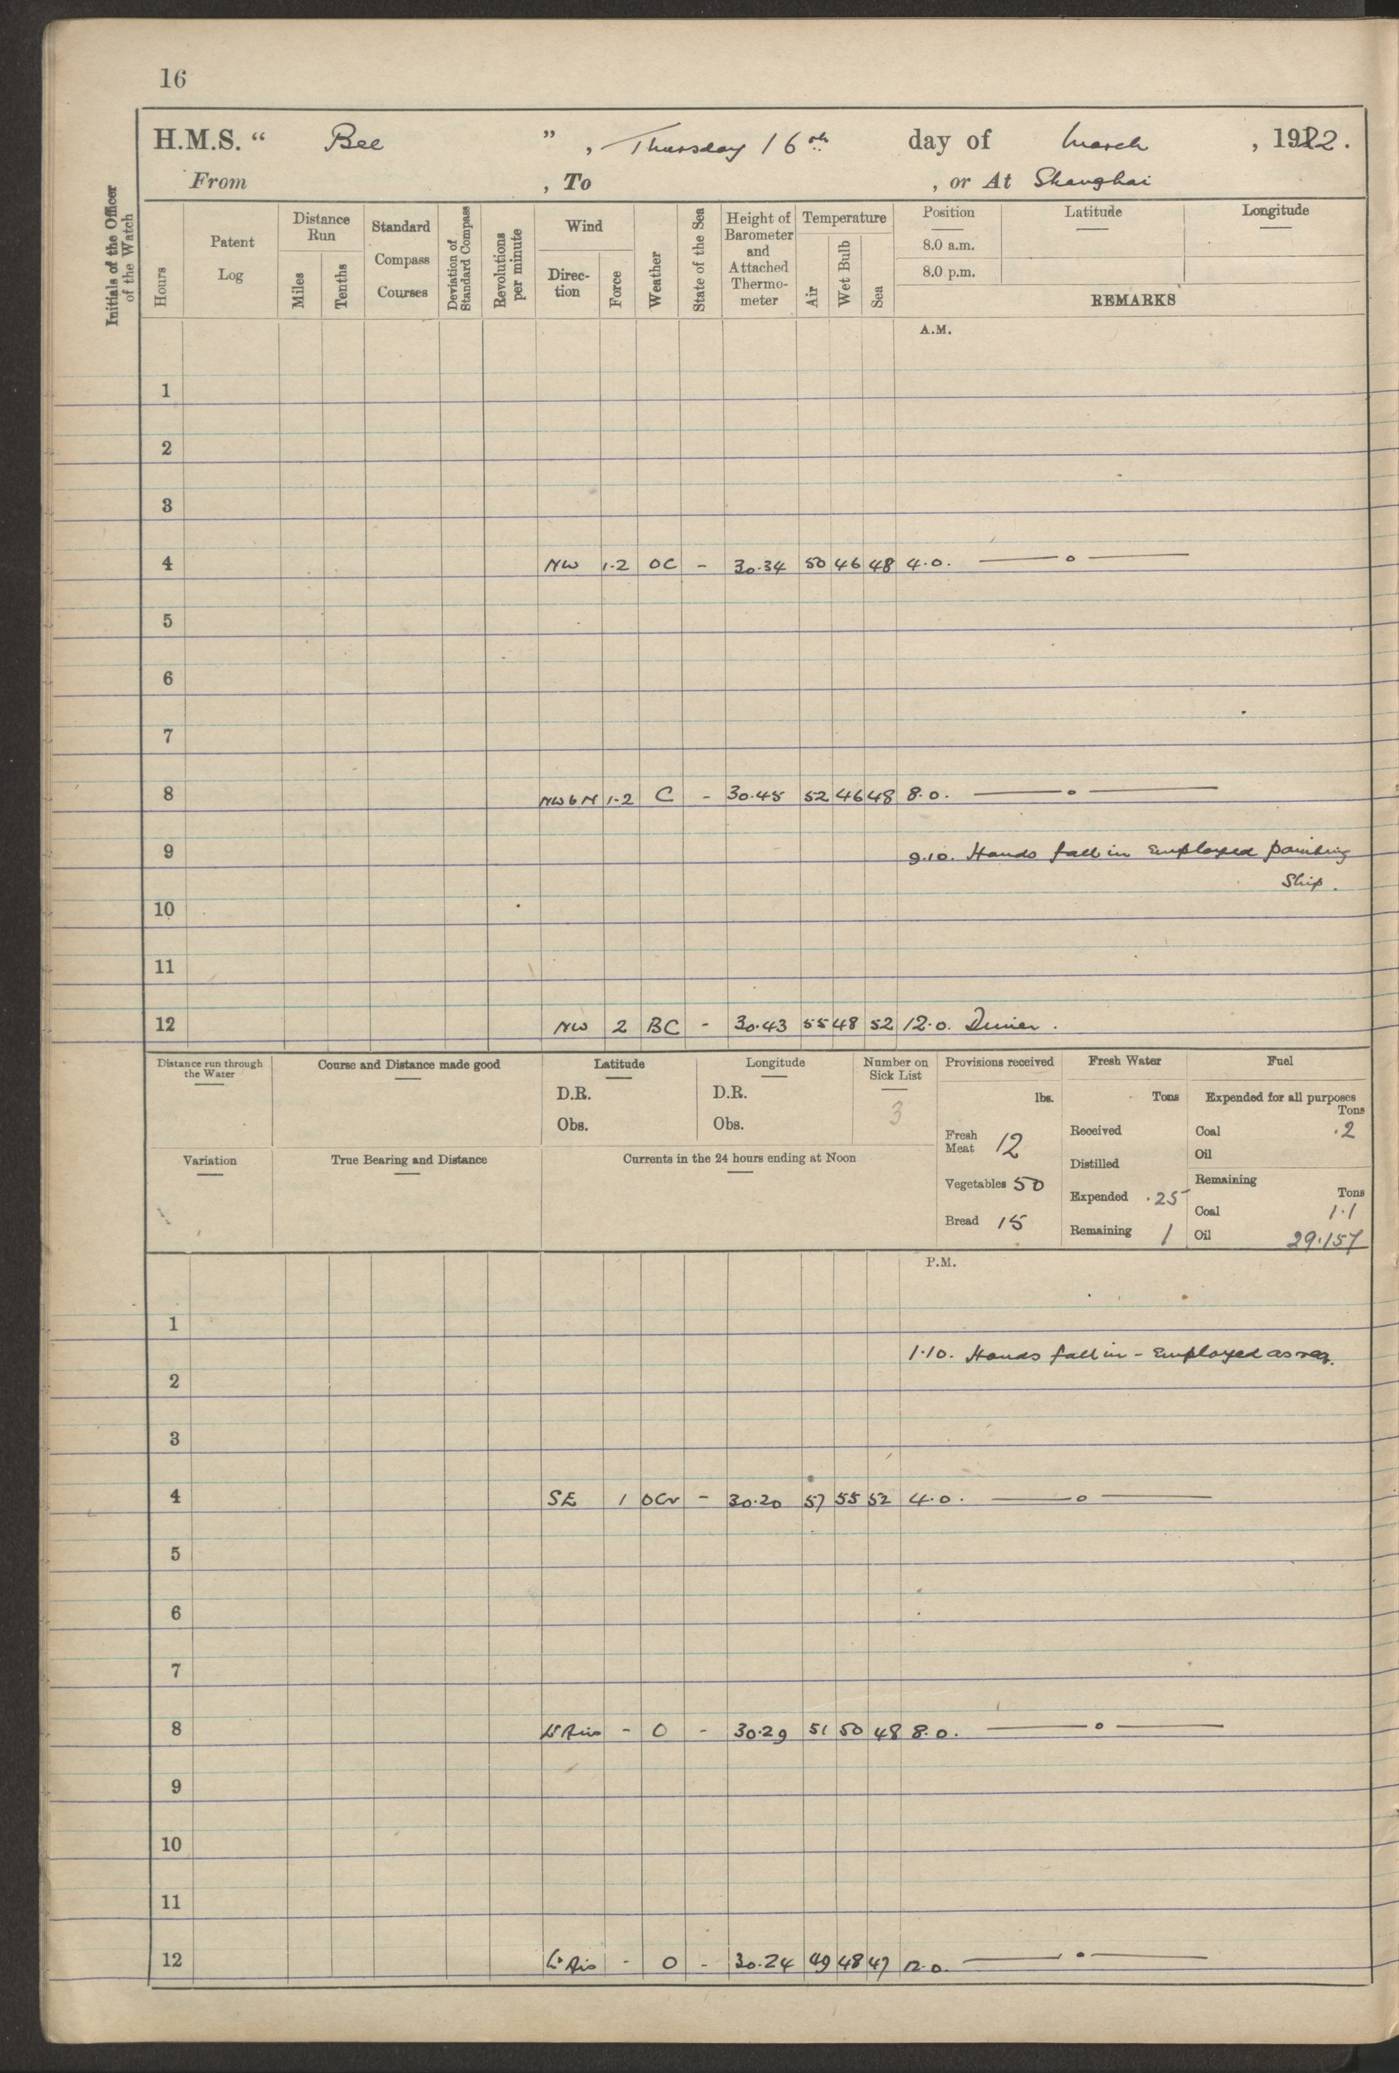 16
H.M.S. “ Bee ” , Thursday 16th day of March , 1922.
From , To , or At Shanghai
Initials of the Officer of the Watch
Hours
Patent Log
Distance Run
Miles
Tenths
Standard Compass Courses
Deviation of Standard Compass
Revolutions per minute
Wind
Direc-tion
Force
Weather
State of the Sea
Height of Barometer and Attached Thermo-meter
Temperature
Air
Wet Bulb
Sea
Position
8.0 a.m.
8.0 p.m.
Latitude
Longitude
REMARKS
A.M.
1
2
3
4 NW 1.2 OC - 30.34 50 46 48 4.0. —— o ——
5
6
7
8 NW b N 1.2 C - 30.45 52 46 48 8.0. —— o ——
9 9.10. Hands fall in Employed painting
Ship.
10
11
12 NW 2 BC - 30.43 55 48 52 12.0. Dinner.
Distance run through the Water
Course and Distance made good
Latitude
D.R.
Obs.
Longitude
D.R.
Obs.
Number on Sick List
3
Provisions received
lbs.
Fresh Meat 12
Vegetables 50
Bread 15
Fresh Water
Tons
Received
Distilled
Expended .25
Remaining 1
Fuel
Expended for all purposes
Tons
Coal .2
Oil
Remaining
Tons
Coal 1.1
Oil 29.157
Variation
True Bearing and Distance
Currents in the 24 hours ending at Noon
P.M.
1
1.10. Hands fall in - Employed as req.
2
3
4 SE 1 OCr - 30.20 57 55 52 4.0. —— o ——
5
6
7
8 Lt Airs - O - 30.29 51 50 48 8.0. —— o ——
9
10
11
12 Lt Airs - O - 30.24 49 48 47 12.0. —— o ——